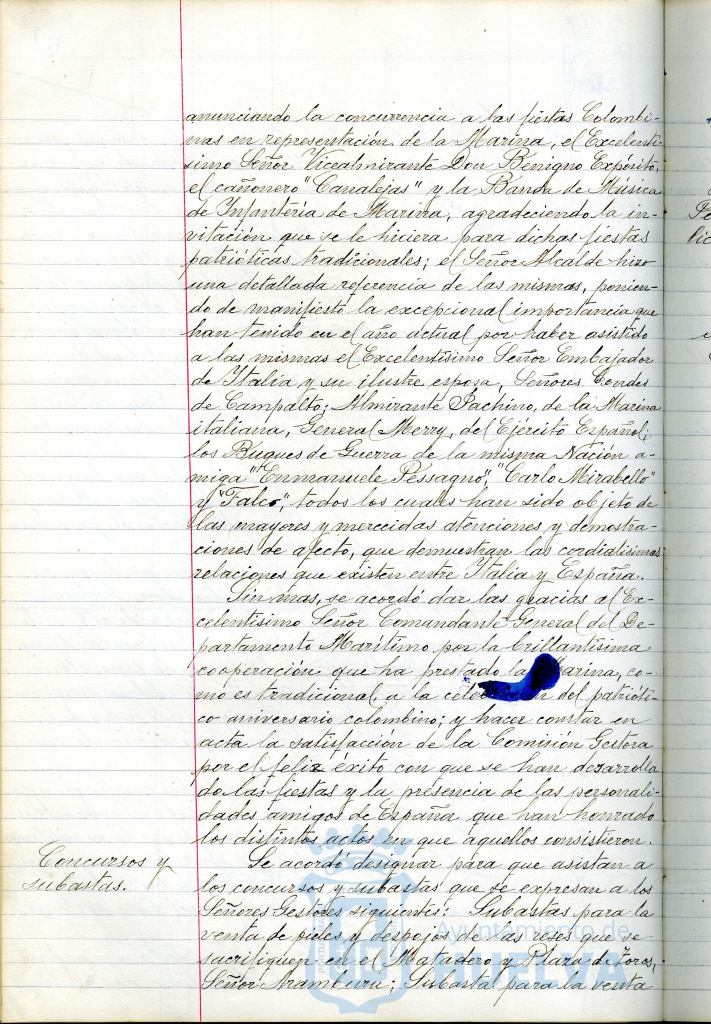 anunciando la concurrencia a las fiestas Colombi-
nas en representación de la Marina, el Excelentí-
simo Señor Vicealmirante Don Benigno Expósito,
el cañonero "Canalejas" y la Banda de Música
de Infantería de Marina, agradeciendo la in-
vitación que se le hiciera para dichas fiestas
patrióticas tradicionales; el Señor Alcalde hizo
una detallada referencia de las mismas, ponien-
do de manifiesto la excepcional importancia que
han tenido en el año actual por haber asistido
a las mismas el Excelentísimo Señor Embajador
de Italia y su ilustre esposa, Señores Condes
de Campalto; Almirante Iachino, de la Marina
italiana, General Merry, del Ejército Español;
los Buques de Guerra de la misma Nación a-
miga "Enmanuele Pessagno", "Carlo Mirabello"
y "Falco", todos los cuales han sido objeto de
las mayores y merecidas atenciones y demostra-
ciones de afecto, que demuestran las cordialísimas
relaciones que existen entre Italia y España.
Sin más, se acordó dar las gracias al Ex-
celentísimo Señor Comandante General del De-
partamento Marítimo por la brillantísima
cooperación que ha prestado la Marina, co-
mo es tradicional, a la del patrióti-
co aniversario colombino; y hacer constar en
acta la satisfacción de la Comisión Gestora
por el feliz éxito con que se han desarrolla
do las fiestas y la presencia de las personali-
dades amigos de España que han honrado
los distintos actos en que aquellos consistieron.
Concursos y
subastas.
Se acordó designar para que asistan a
los concursos y subastas que se expresan a los
Señores Gestores siguientes: Subastas para la
venta de pieles y despojos de las reses que se
sacrifiquen en el Matadero y Plaza de Toros,
Señor Aramburu; Subasta para la venta
Ayuntamiento de
HUELVA